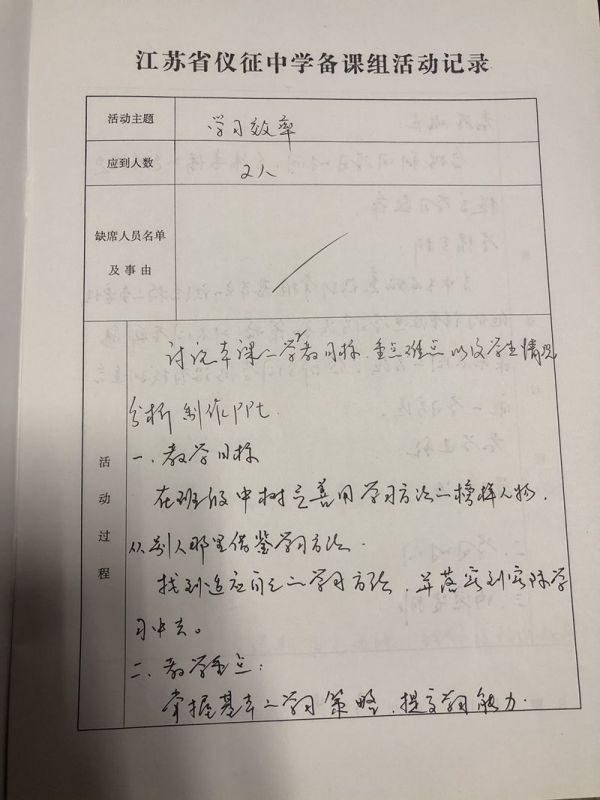 江苏省仪征中学备课组活动记录
活动主题
学习效率
应到人数
2人
缺席人员名单
及事由
活动过程
讨论本课的学教目标、重点难点以及学生情况
分析 制作PPt.
一、教学目标
在班级中树立善用学习方法的榜样人物,
从别人那里借鉴学习方法.
找到适应自己的学习方法,并落实到实际学
习中去。
二、教学重点:
掌握基本的学习策略,提高学习能力.